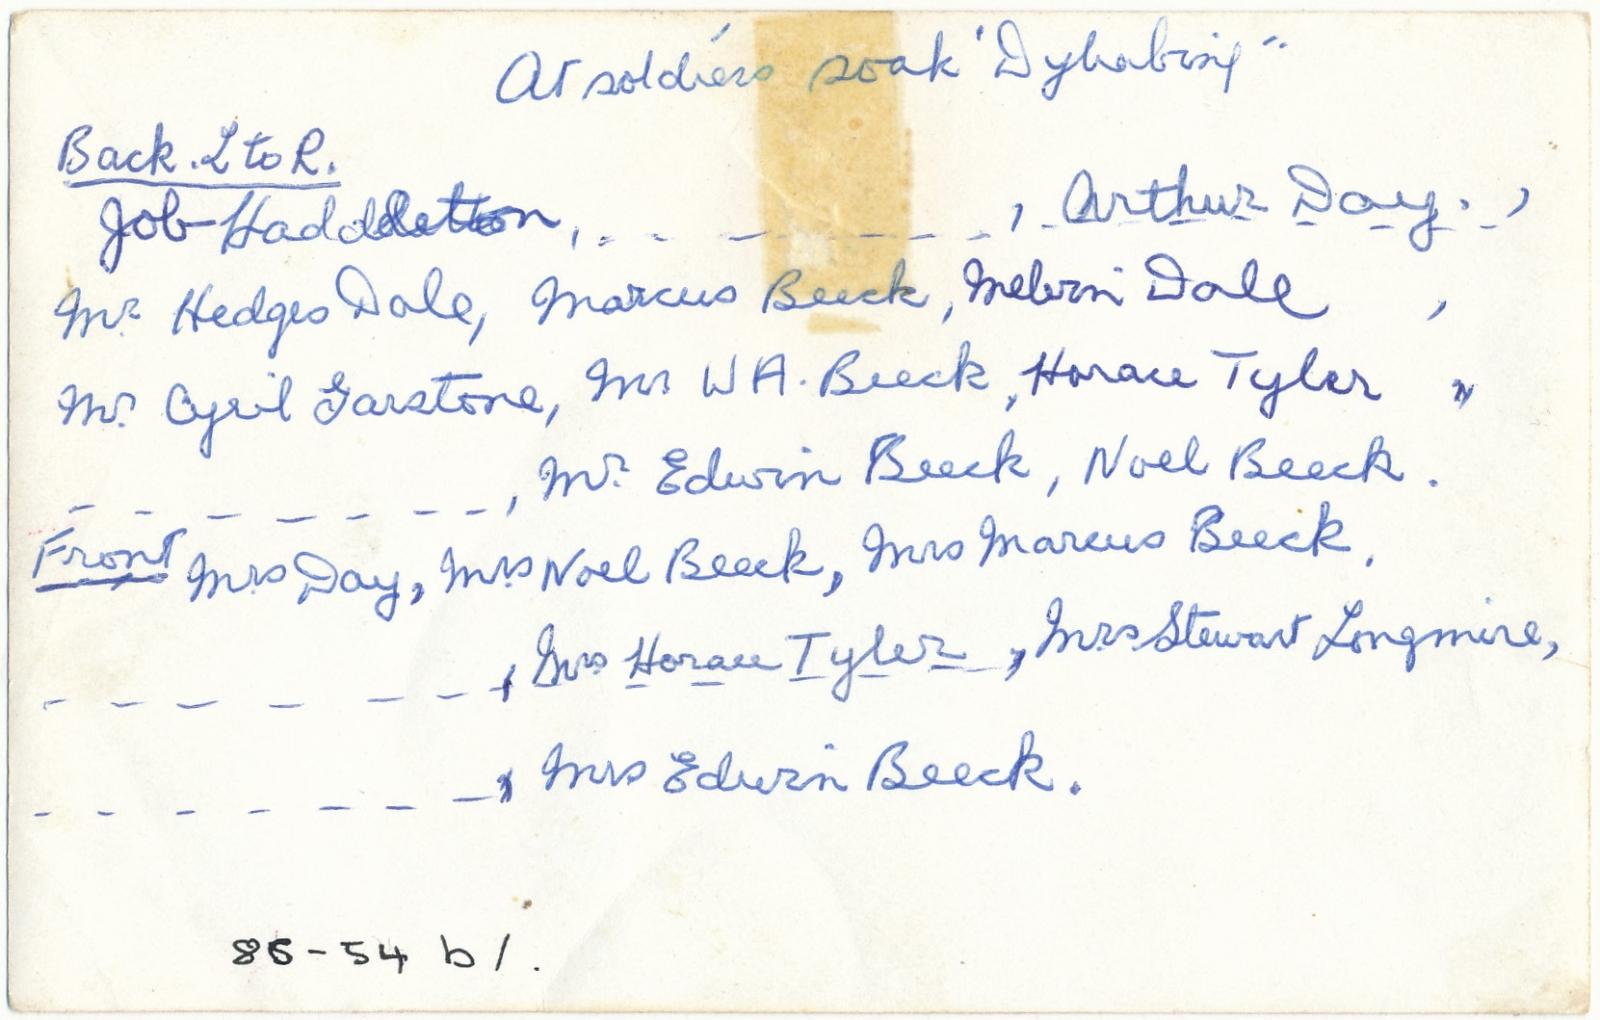 At soldiers' soak "Dyhabing"
Back. L to R.
Job Haddleton, . - - - - - - - , Arthur Day. ,
Mr Hedges Dale, Marcus Beeck, Melvin Dale ,
Mr. Cyril Garstone, Mr W A. Beeck, Horace Tyler ,
- - - - - - - - , Mr. Edwin Beeck, Noel Beeck.
Front Mrs Day, Mrs Noel Beeck, Mrs Marcus Beeck,
- - - - - - - , Mrs Horace Tyler, Mrs Stewart Longmire,
- - - - - - - - , Mrs Edwin Beeck.
86-54 b/.